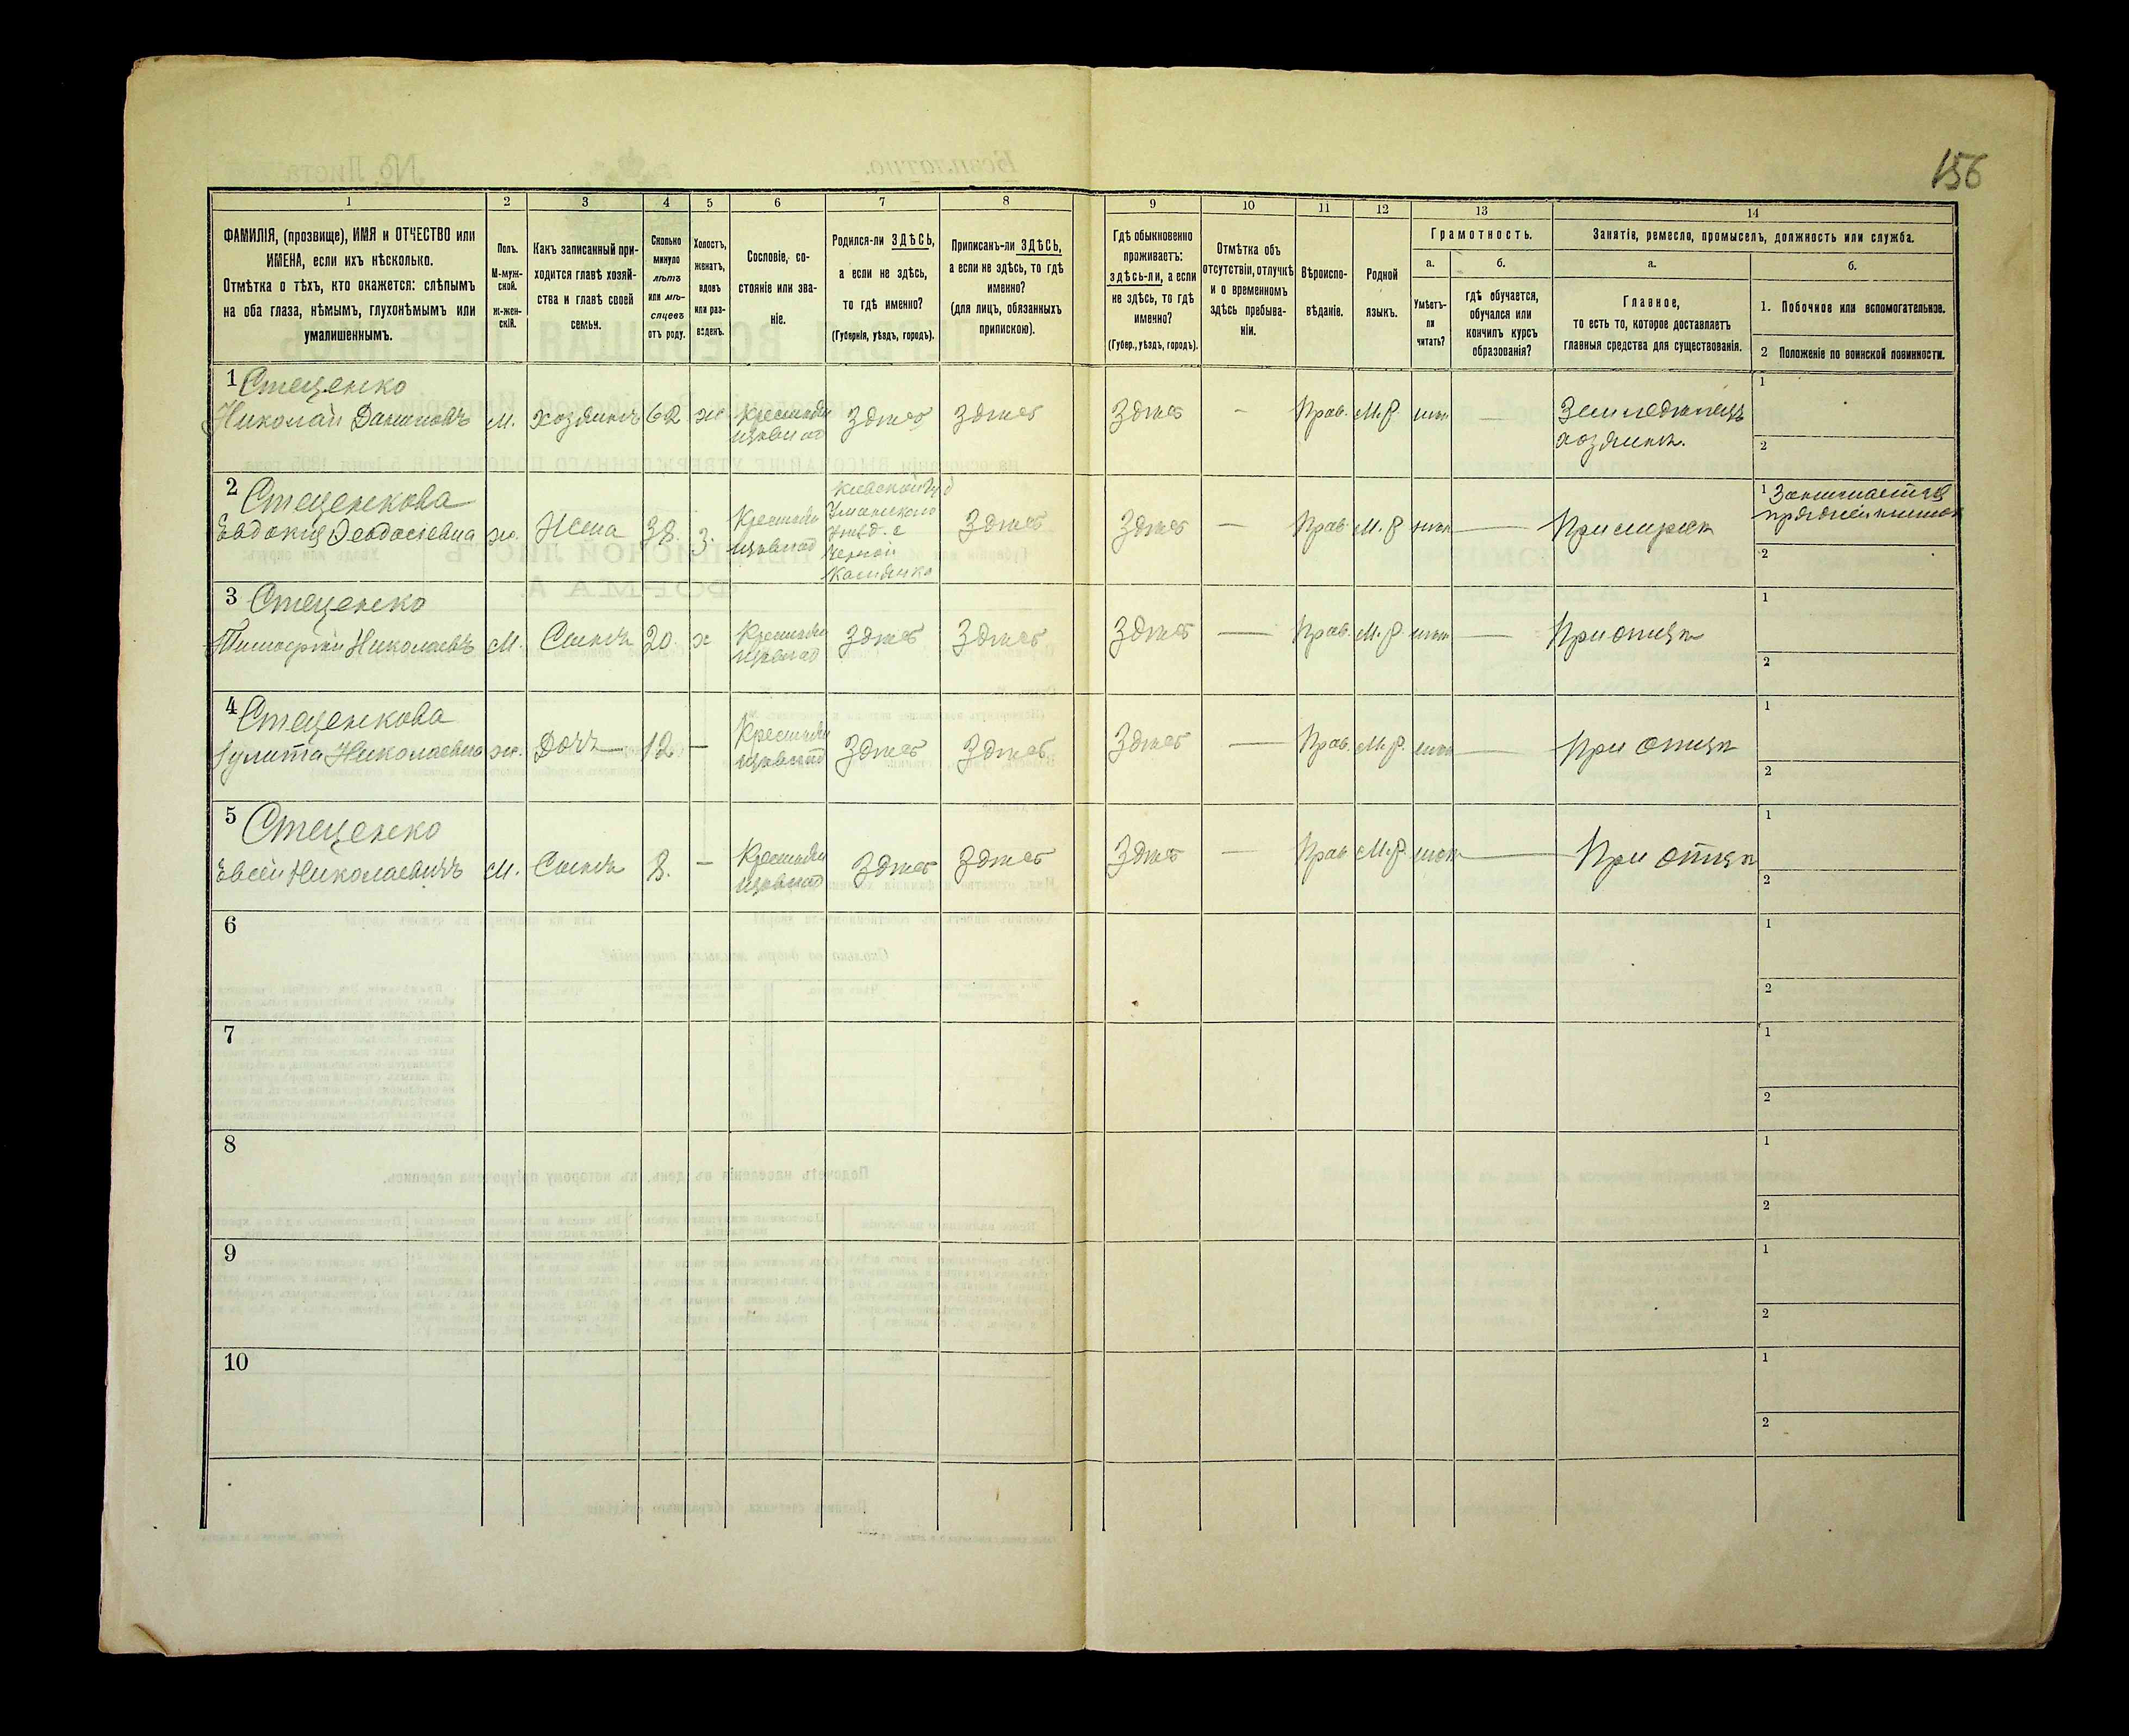 156
1
2
3
4
5
6
7
8
9
10
11
12
13
14
ФАМИЛІЯ, (прозвище), ИМЯ и ОТЧЕСТВО или
ИМЕНА, если ихъ нѣсколько.
Отмѣтка о тѣхъ, кто окажется: слѣпымъ
на оба глаза, нѣмымъ, глухонѣмымъ или
умалишеннымъ.
Полъ.
М-муж-
ской.
ж-жен-
скій.
Какъ записанный при-
ходится главѣ хозяй-
ства и главѣ своей
семьи.
Сколько
минуло
лѣтъ
или мѣ-
сяцевъ
отъ роду.
Холостъ,
женатъ,
вдовъ
или раз-
веденъ.
Сословіе, со-
стояніе или зва-
ніе.
Родился-ли ЗДѢСЬ,
а если не здѣсь,
то гдѣ именно?
(Губернія, уѣздъ, городъ).
Приписанъ-ли ЗДѢСЬ,
а если не здѣсь, то гдѣ
именно?
(для лицъ, обязанныхъ
припискою).
Гдѣ обыкновенно
проживаетъ:
здѣсь-ли, а если
не здѣсь, то гдѣ
именно?
(Губер., уѣздъ, городъ).
Отмѣтка объ
отсутствіи, отлучкѣ
и о временномъ
здѣсь пребыва-
ніи.
Вѣроиспо-
вѣданіе.
Родной
языкъ.
Грамотность.
а.
Умѣетъ-
ли
читать?
б.
гдѣ обучается,
обучался или
кончилъ курсъ
образованія?
Занятіе, ремесло, промыселъ, должность или служба.
а.
Главное,
то есть то, которое доставляетъ
главныя средства для существованія.
б.
1. Побочное или вспомогательное.
2 Положеніе по воинской повинности.
1 Стеценко
Николай Даниловъ м. хозяинъ 62 ж Крестьян
Здѣсь Здѣсь Здѣсь — Прав. М.Р. нѣт — Земледѣлецъ
хозяинъ.
1
2
2 Стеценкова
Евдокия Феодосиевна ж. Жена 38. з. Крестьян
Киевской
Уманского
уѣзд. с
Черной
Каменка
Здѣсь Здѣсь — Прав. М.Р нѣт — При мужѣ
1 Занимается
2
3 Стеценко
Тимофей Николаевъ М. Сынъ 20. х Крестьян
Здѣсь Здѣсь Здѣсь — Прав. М.Р. нѣт — При отцѣ
1
2
4 Стеценкова
Іулита Николаевна ж. Дочь 12 — Крестьян
Здѣсь Здѣсь Здѣсь — Прав. М.Р. нѣт — При отцѣ
1
2
5 Стеценко
Евсей Николаевичъ М. Сынъ 8. — Крестьян
Здѣсь Здѣсь Здѣсь — Прав М.Р. нѣт — При отцѣ
1
2
6
1
2
7
1
2
8
1
2
9
1
2
10
1
2